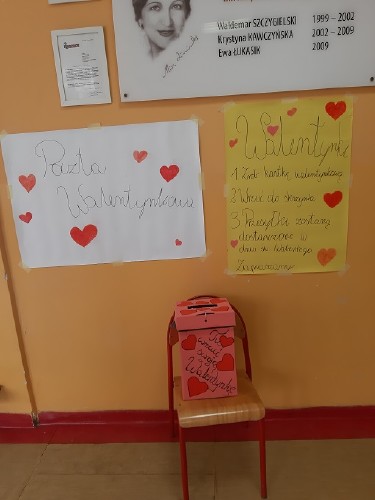 Waldemar SZCZYGIELSKI 1999 – 2002
Krystyna KAWCZYŃSKA 2002 – 2009
Ewa ŁUKASIK 2009
Poczta
Walentynkowa
Walentynki
1 Zrób kartkę walentynkową
2 Wrzuć do skrzynki
3 Przesyłki zostaną
dostarczone w
dniu św. Walentego
Zapraszamy
Tu
wrzuć
swoją
Walentynkę